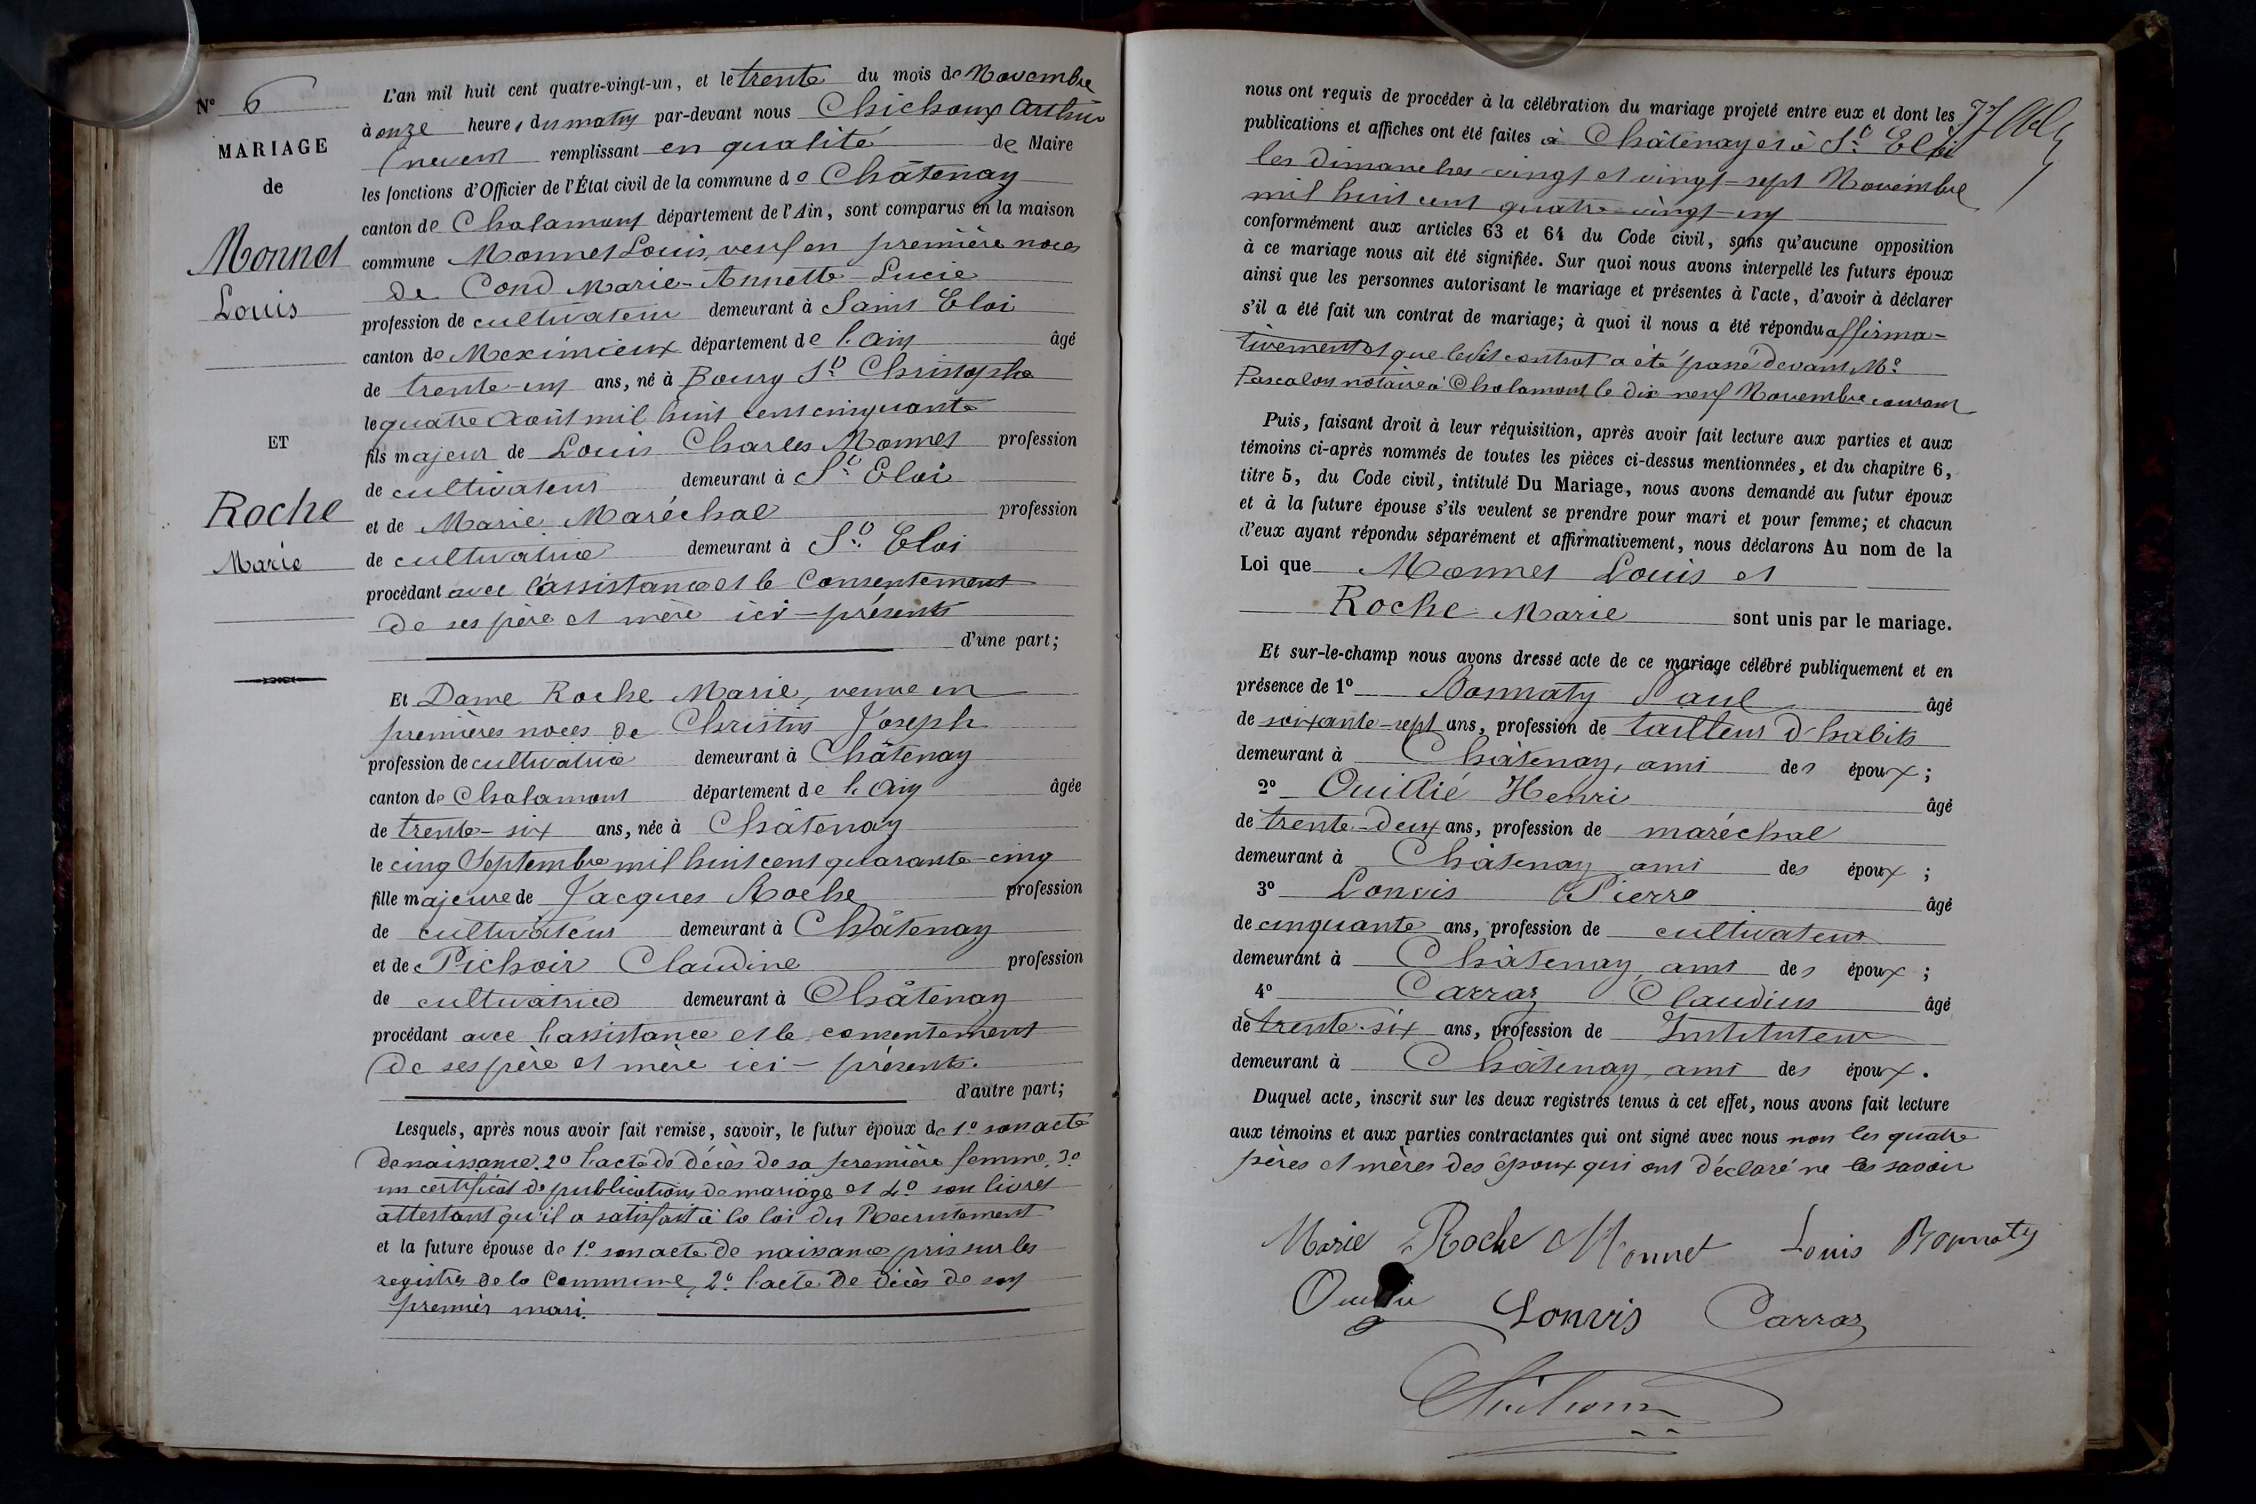 N° 6
MARIAGE
de
Monnet
Louis
ET
Roche
Marie
L'an mil huit cent quatre-vingt-un, et le trente du mois de Novembre
à onze heures du matin par-devant nous Chichoux Arthur
remplissant en qualité de Maire
les fonctions d'Officier de l'État civil de la commune de Châtenay
canton de Chalamont département de l'Ain, sont comparus en la maison
commune Monnet Louis, veuf en première noces
de Cond Marie-Annette-Lucie
profession de cultivateur demeurant à Saint Eloi
canton de Meximieux département de l'Ain âgé
de trente-un ans, né à Bourg St Christophe
le quatre Août mil huit cent cinquante
fils majeur de Louis Charles Monnet profession
de cultivateur demeurant à St Eloi
et de Marie Maréchal profession
de cultivatrice demeurant à St Eloi
procédant avec l'assistance et le consentement
de ses père et mère ici-présents
d'une part;
Et Dame Roche Marie, veuve en
premières noces de Christin Joseph
profession de cultivatrice demeurant à Châtenay
canton de Chalamont département de l'Ain âgée
de trente-six ans, née à Châtenay
le cinq Septembre mil huit cent quarante-cinq
fille majeure de Jacques Roche profession
de cultivateur demeurant à Châtenay
et de Pichoir Claudine profession
de cultivatrice demeurant à Châtenay
procédant avec l'assistance et le consentement
de ses père et mère ici-présents.
d'autre part;
Lesquels, après nous avoir fait remise, savoir, le futur époux de 1° son acte
de naissance. 2° l'acte de décès de sa première femme, 3°
un certificat de publications de mariage et 4° son livret
attestant qu'il a satisfait à la loi du Recrutement
et la future épouse de 1° son acte de naissance pris sur les
registres de la Commune, 2° l'acte de décès de son
premier mari.
nous ont requis de procéder à la célébration du mariage projeté entre eux et dont les
publications et affiches ont été faites à Châtenay et à St Eloi
les dimanches vingt et vingt-sept Novembre
mil huit cent quatre-vingt-un
conformément aux articles 63 et 64 du Code civil, sans qu'aucune opposition
à ce mariage nous ait été signifiée. Sur quoi nous avons interpellé les futurs époux
ainsi que les personnes autorisant le mariage et présentes à l'acte, d'avoir à déclarer
s'il a été fait un contrat de mariage; à quoi il nous a été répondu affirma-
tivement et que ledit contrat a été passé devant Me
Pascalon notaire à Chalamont le dix neuf Novembre courant
Puis, faisant droit à leur réquisition, après avoir fait lecture aux parties et aux
témoins ci-après nommés de toutes les pièces ci-dessus mentionnées, et du chapitre 6,
titre 5, du Code civil, intitulé Du Mariage, nous avons demandé au futur époux
et à la future épouse s'ils veulent se prendre pour mari et pour femme; et chacun
d'eux ayant répondu séparément et affirmativement, nous déclarons Au nom de la
Loi que Monnet Louis et
Roche Marie sont unis par le mariage.
Et sur-le-champ nous avons dressé acte de ce mariage célébré publiquement et en
présence de 1° Bonnaty Paul âgé
de soixante-sept ans, profession de tailleur d'habits
demeurant à Châtenay, ami des époux;
2° Ouillié Henri âgé
de trente-deux ans, profession de maréchal
demeurant à Châtenay ami des époux;
3° Lonvis Pierre âgé
de cinquante ans, profession de cultivateur
demeurant à Châtenay, ami des époux;
4° Carraz Claudius âgé
de trente-six ans, profession de Instituteur
demeurant à Châtenay, ami des époux.
Duquel acte, inscrit sur les deux registres tenus à cet effet, nous avons fait lecture
aux témoins et aux parties contractantes qui ont signé avec nous non les quatre
pères et mères des époux qui ont déclaré ne les savoir
Marie Roche Monnet Louis Bonnaty
Lonvis Carraz